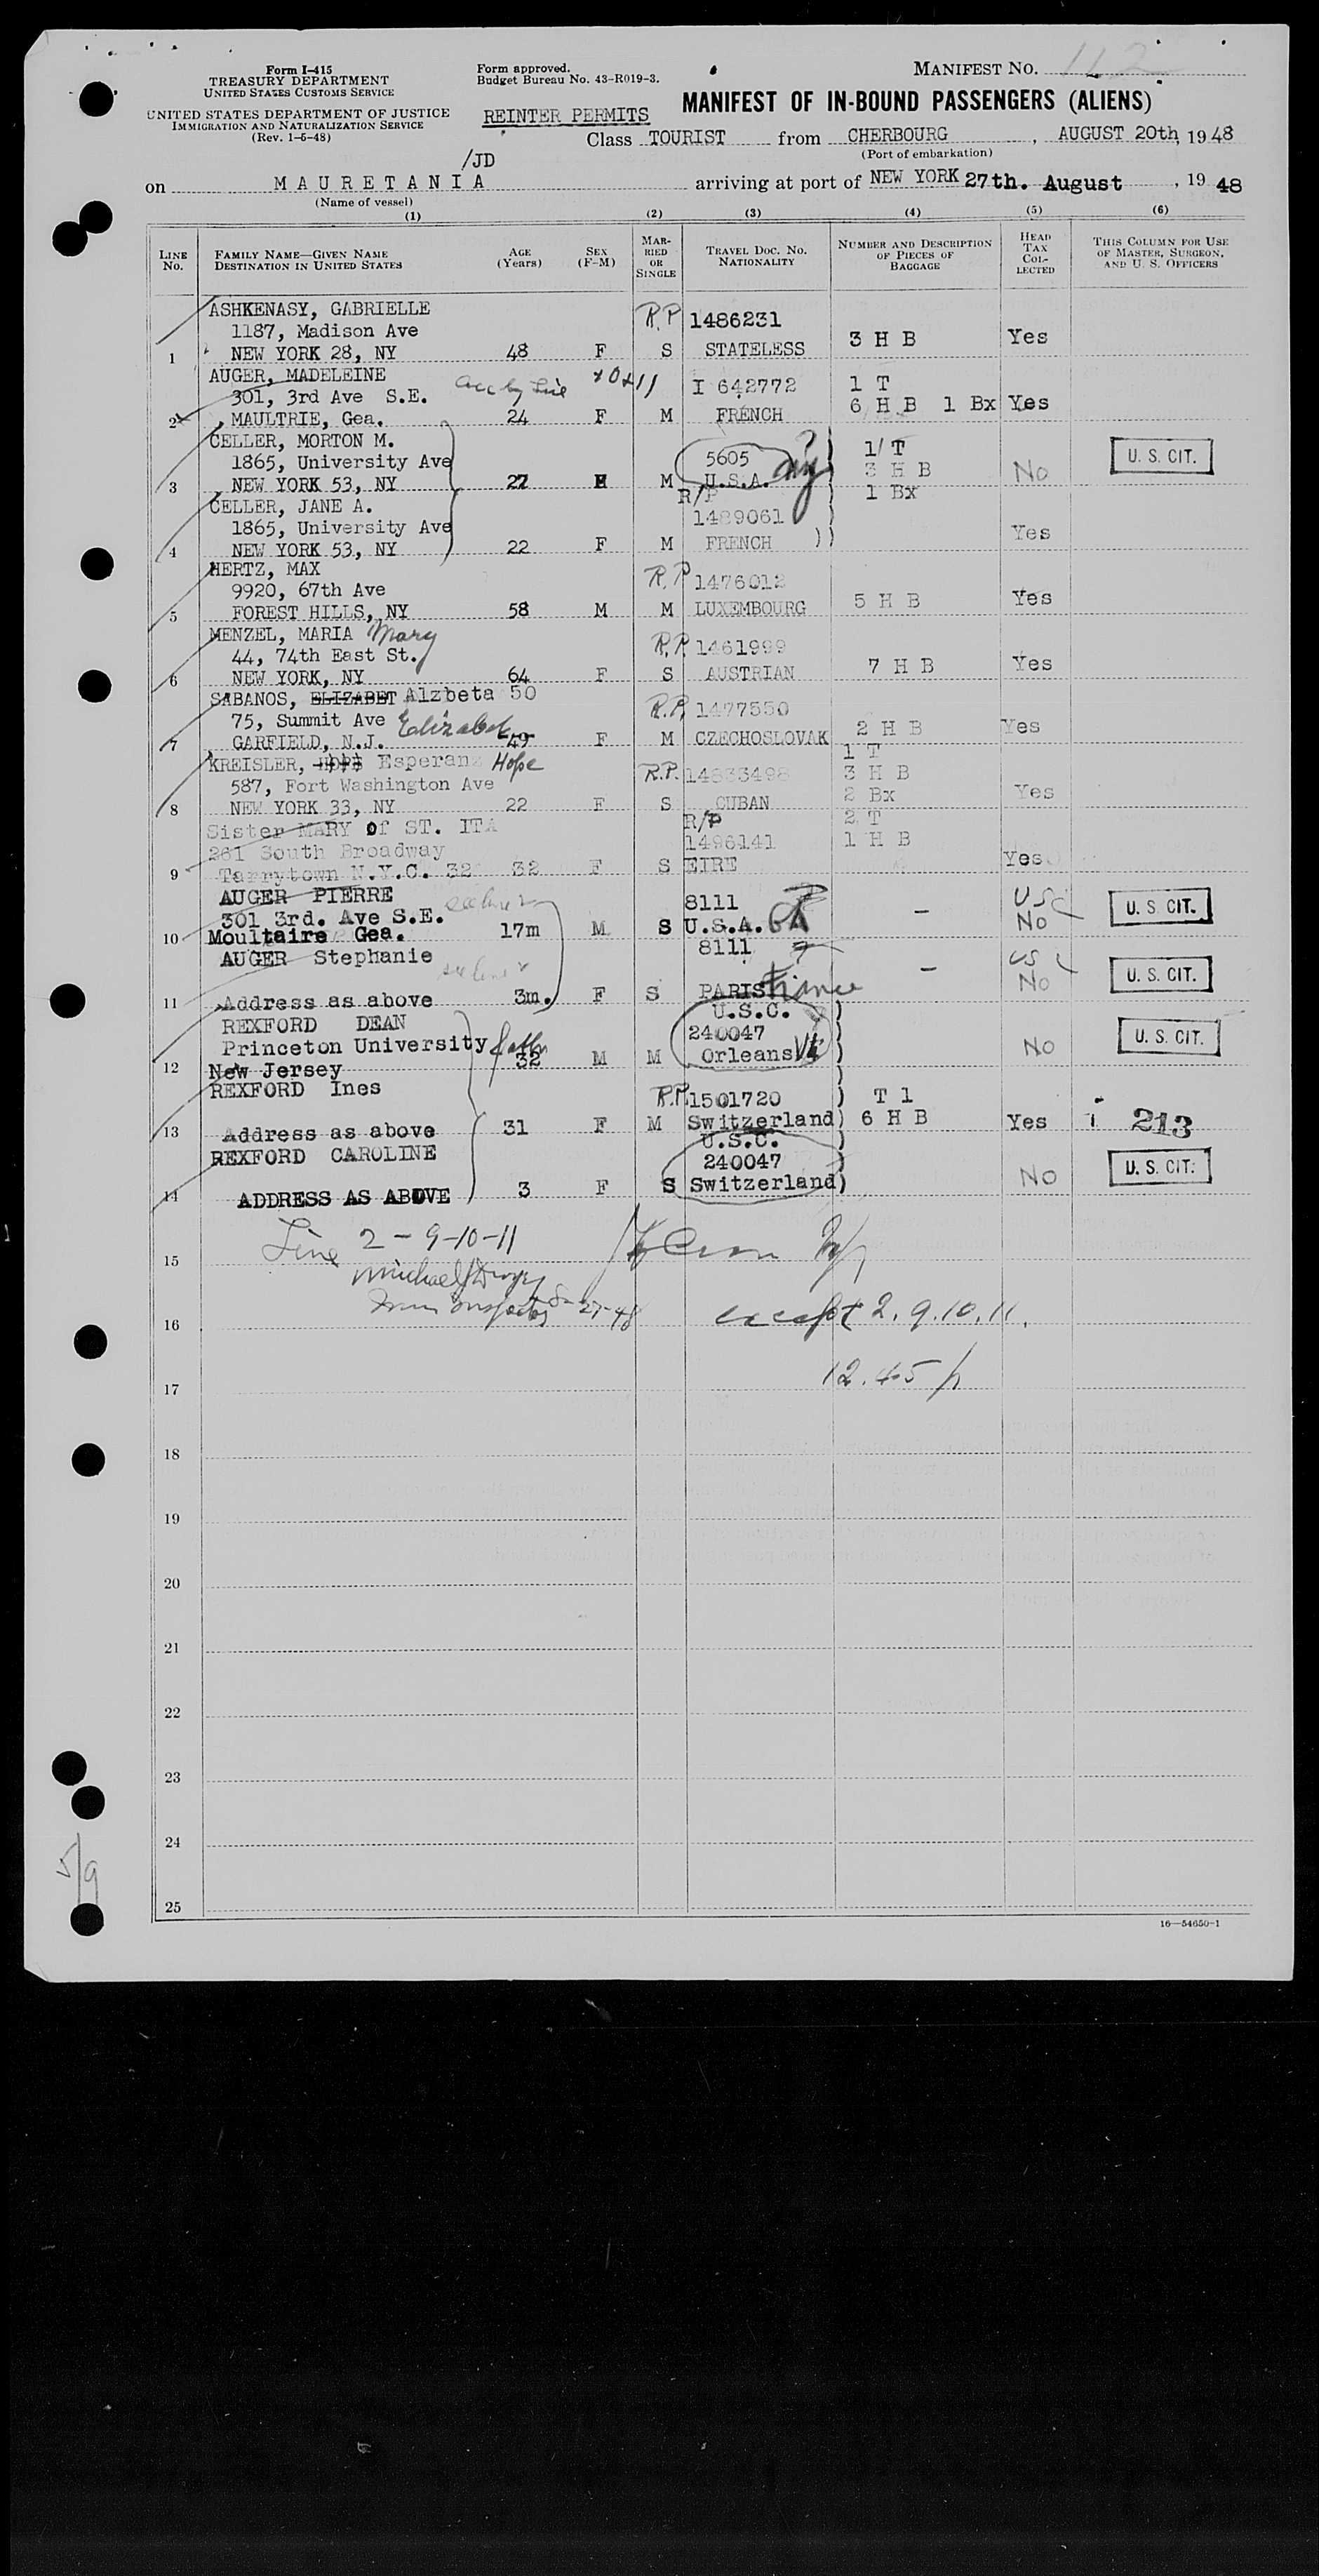 Form I-415
TREASURY DEPARTMENT
UNITED STATES CUSTOMS SERVICE
UNITED STATES DEPARTMENT OF JUSTICE
IMMIGRATION AND NATURALIZATION SERVICE
(Rev. 1-5-48)
Form approved.
Budget Bureau No. 43-R019-3.
MANIFEST NO. 112
REINTER PERMITS
MANIFEST OF IN-BOUND PASSENGERS (ALIENS)
Class TOURIST from CHERBOURG, AUGUST 20th, 19 48
(Port of embarkation)
/JD
on MAURETANIA arriving at port of NEW YORK 27th. August, 19 48
(Name of vessel)
(1) (2) (3) (4) (5) (6)
LINE No. FAMILY NAME—GIVEN NAME DESTINATION IN UNITED STATES AGE (Years) SEX (F-M) MARRIED OR SINGLE TRAVEL DOC. NO. NATIONALITY NUMBER AND DESCRIPTION OF PIECES OF BAGGAGE HEAD TAX COLLECTED THIS COLUMN FOR USE OF MASTER, SURGEON, AND U. S. OFFICERS
ASHKENASY, GABRIELLE R.P 1486231
1187, Madison Ave 3 H B Yes
1 NEW YORK 28, NY 48 F S STATELESS
AUGER, MADELEINE 10 & 11 I 642772 1 T
301, 3rd Ave S.E. acc by line 6 H B 1 Bx Yes
2 MAULTRIE, Gea. 24 F M FRENCH
CELLER, MORTON M. 5605 1 T U. S. CIT.
1865, University Ave 3 H B No
3 NEW YORK 53, NY 27 M M U.S.A. NY 1 Bx
CELLER, JANE A. R/P
1865, University Ave 1489061 Yes
4 NEW YORK 53, NY 22 F M FRENCH
HERTZ, MAX R.P 1476012
9920, 67th Ave 5 H B Yes
5 FOREST HILLS, NY 58 M M LUXEMBOURG
MENZEL, MARIA Mary R.P. 1461999
44, 74th East St. 7 H B Yes
6 NEW YORK, NY 64 F S AUSTRIAN
SABANOS, ELIZABET Alzbeta 50 R.P. 1477550
75, Summit Ave Elizabet 2 H B Yes
7 GARFIELD, N.J. 49 F M CZECHOSLOVAK 1 T
KREISLER, HOPE Esperanz Hope R.P. 14833498 3 H B
587, Fort Washington Ave 2 Bx Yes
8 NEW YORK 33, NY 22 F S CUBAN
Sister MARY of ST. ITA R/P 2 T
261 South Broadway 1496141 1 H B
9 Tarrytown N.Y.C. 32 32 F S EIRE Yes
AUGER PIERRE 8111 USC U. S. CIT.
301 3rd. Ave S.E. – No
10 Moultaire Gea. 17m M S U.S.A.
AUGER Stephanie 8111 USC
– No U. S. CIT.
11 Address as above 3m. F S PARIS France
REXFORD DEAN U.S.C.
Princeton University 240047 No U. S. CIT.
12 New Jersey 32 M M Orleans Vt
REXFORD Ines R.P. 1501720 T 1
13 Address as above 31 F M Switzerland) 6 H B Yes 213
REXFORD CAROLINE U.S.C.
240047 No U. S. CIT.
14 ADDRESS AS ABOVE 3 F S Switzerland)
Line 2 - 9-10-11
15
8-27-48
16 except 2. 9. 10. 11.
12.45 p
17
18
19
20
21
22
23
24
25
5/9
16—54650-1